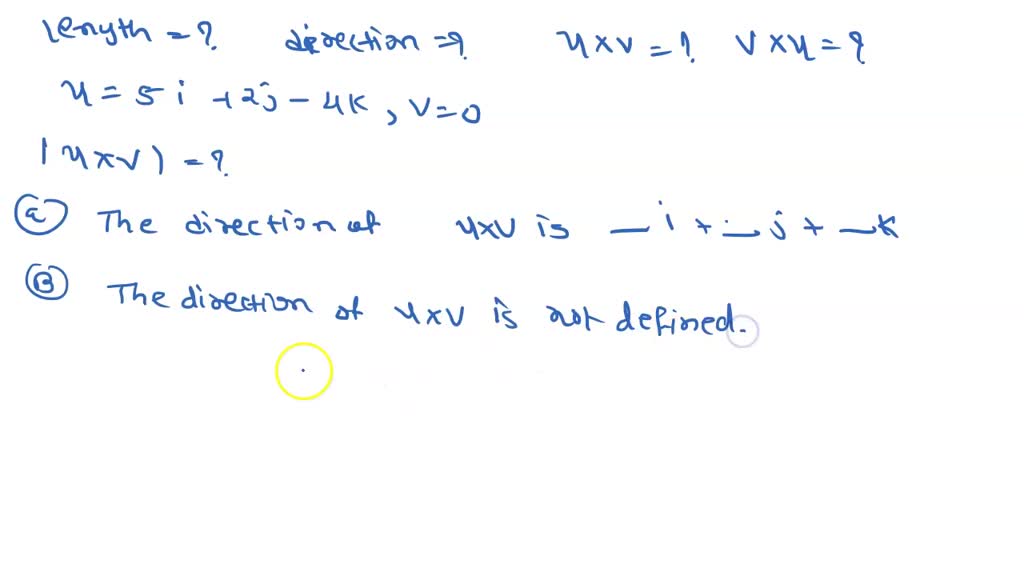 length = ? direction = ? u×v = ? v×u = ?
u = 5i + 2j - 4k, v = 0
|u×v| = ?
(a) The direction of u×v is _ i + _ j + _ k
(B) The direction of u×v is not defined.